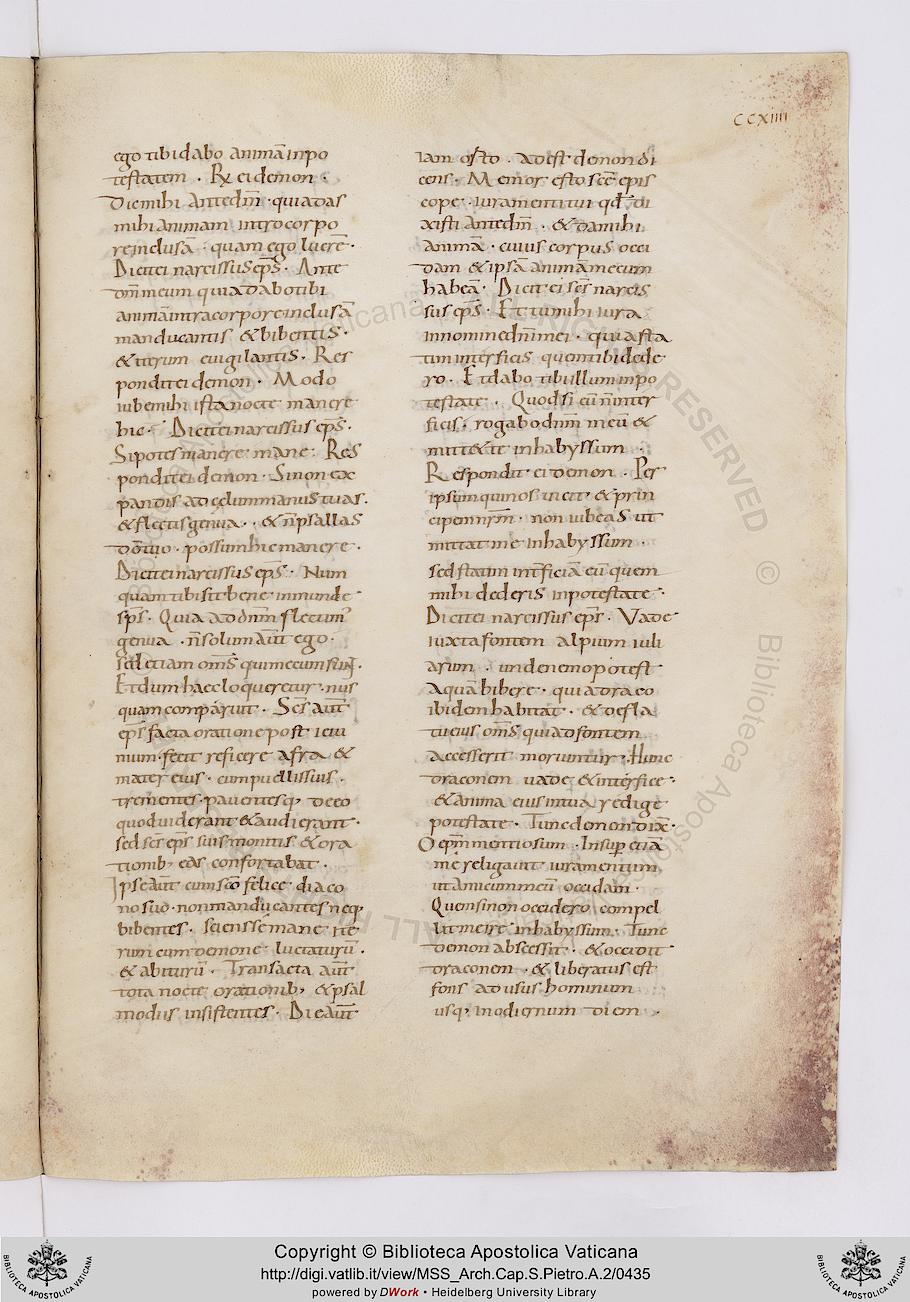 CCXIIII
ego tibi dabo animā inpo
testatem . R̷ ei demon .
Dic mihi ante dm̄ · quia das
mihi animam intro corpo
re inclusā · quam ego luerē ·
Dicit ei narcissus ep̄s · Ante
dm̄ meum quia dabo tibi
animā intra corpore inclusā
manducantis & bibentis ·
& iterum euigilantis . Res
pondit ei demon · Modo
iube mihi ista nocte manere
hic · Dicit ei narcissus ep̄s ·
Si potes manere mane : Res
pondit ei demon · Si non ex
pandis ad cęlum manus tuas .
& flectis genua · & n̄ psallas
dō tuo · possum hic manere ·
Dicit ei narcissus ep̄s · Num
quam tibi sit bene inmunde
sps̄ · Quia ad dn̄m flectim'
genua · n̄ solum aūt ego ·
sed etiam om̄s qui mecum sunt .
Et dum haec loqueretur · nus
quam comparuit · Sc̄s aūt
ep̄s facta oratione post ieiu
nium · fecit reficere afra &
mater eius · cum puellis suis .
trementes · pauentesq; de eo
quod uiderant & audierant ·
sed sc̄s ep̄s suis monitis & ora
tionib; eas confortabat .
Ipse aūt cum sc̄o felice diaco
no suo · non manducantes neq;
bibentes · sciens se mane ite
rum cum demone luctaturū .
& abiturū · Transacta aūt
tota nocte orationib; & psal
modiis insistentes · Die aūt
iam orto · adest demon di
cens · Memor esto sc̄e epis
cope · iuramenti tui qd̄ di
xisti ante dm̄ · & da mihi
animā · cuius corpus occi
dam & ipsā animā mecum
habeā · Dicit ei sc̄s narcis
sus ep̄s · Et tu mihi iura
in nomine dn̄i mei · quia sta
tim interficis quem tibi dede
ro · Et dabo tibi illum in po
testate . Quod si eū n̄ inter
ficis · rogabo dn̄m meū &
mitt& te in habyssum .
Respondit ei demon . Per
ipsum qui nos uicit & prin
cipem nr̄m · non iubeas ut
mittat me in habyssum ·
sed statim int̄ficiā eū quem
mihi dederis in potestate ·
Dicit ei narcissus ep̄s · Vade
iuxta fontem alpium iuli
arum · unde nemo potest
aquā bibere · quia draco
ibidem habitat · & de fla
tu eius om̄s qui ad fontem
accesserit moriuntur · Hunc
draconem uade & interfice ·
& anima eius in tua redige
potestate · Tunc demon dix̄ ·
O ep̄m mentiosum · Insup etiā
me religauit iuramentum
ut amicum meū occidam ·
Quem si non occidero compel
lit me ire in habyssum . Tunc
demon abscessit · & occidit
draconem · & liberatus est
fons ad usus hominum
usq; in odiernum diem .
Copyright © Biblioteca Apostolica Vaticana
http://digi.vatlib.it/view/MSS_Arch.Cap.S.Pietro.A.2/0435
powered by DWork • Heidelberg University Library